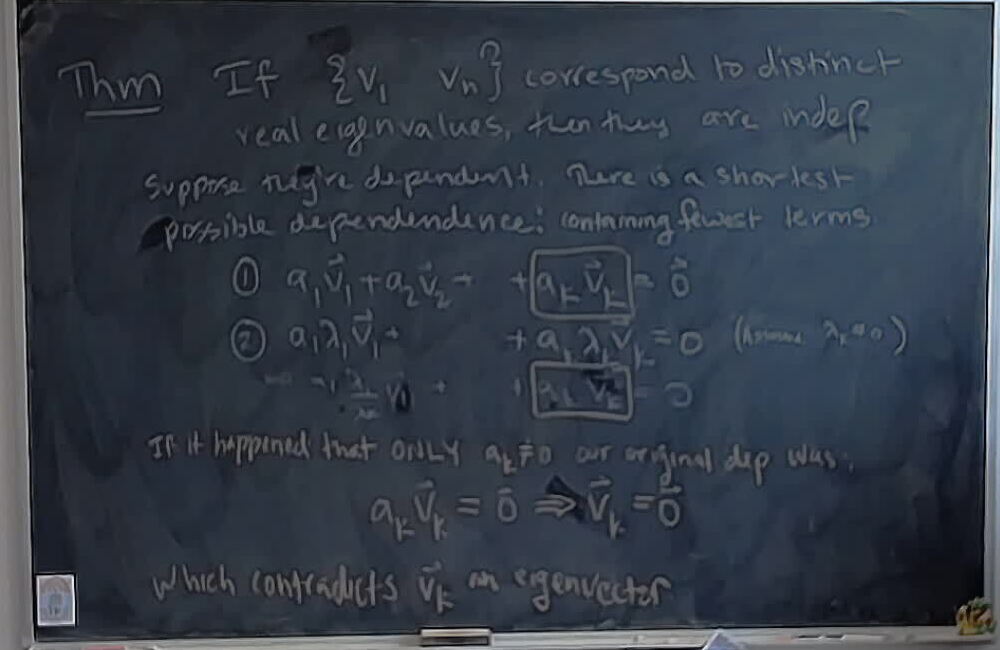 Thm If {v₁ vₙ} correspond to distinct
real eigenvalues, then they are indep
Suppose they're dependent. There is a shortest
possible dependendence: containing fewest terms
① a₁v⃗₁ + a₂v⃗₂ + + aₖv⃗ₖ = 0⃗
② a₁λ₁v⃗₁ + + aₖλₖv⃗ₖ = 0 (Assume λₖ ≠ 0)
+ + aₖ v⃗ₖ = 0
If it happened that ONLY aₖ≠0 our original dep was:
aₖv⃗ₖ = 0⃗ ⇒ v⃗ₖ = 0⃗
Which contradicts v⃗ₖ an eigenvector